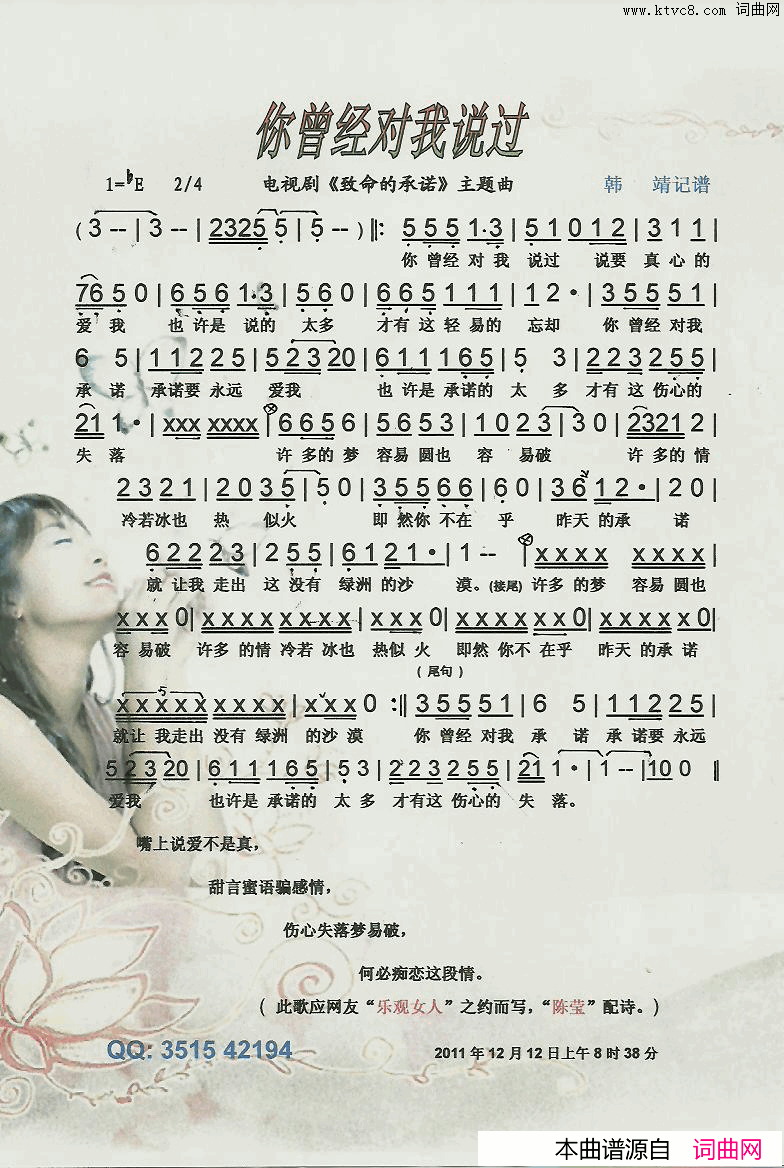 www.ktvc8.com 词曲网
你曾经对我说过
1=♭E 2/4 电视剧《致命的承诺》主题曲 韩 靖记谱
( 3 -- | 3 -- | 2325 5 | 5 -- ) ‖: 5 5 5 1·3 | 5 1 0 1 2 | 3 1 1 |
你 曾经 对 我 说过 说要 真 心 的
76 5 0 | 6 5 6 1·3 | 5 6 0 | 6 6 5 1 1 1 | 1 2 · | 3 5 5 5 1 |
爱 我 也 许是 说的 太多 才有 这 轻易 的 忘却 你 曾经 对我
6 5 | 1 1 2 2 5 | 5 2 3 2 0 | 6 1 1 1 6 5 | 5 3 | 2 2 3 2 5 5 |
承 诺 承诺要 永远 爱我 也 许是 承诺的 太 多 才有 这 伤心的
21 1 · | xxx xxxx | 6 6 5 6 | 5 6 5 3 | 1 0 2 3 | 3 0 | 2321 2 |
失 落 许 多的 梦 容易 圆也 容 易破 许 多的 情
2 3 2 1 | 2 0 3 5 | 5 0 | 3 5 5 6 6 | 6 0 | 3 6 1 2 · | 2 0 |
冷若冰也 热 似火 即 然你 不在 乎 昨天 的承 诺
6 2 2 2 2 3 | 2 5 5 | 6 1 2 1 · | 1 -- | x x x x x x x x |
就 让我 走出 这 没有 绿洲 的沙 漠。(接尾) 许多 的 梦 容易 圆也
x x x 0 | x x x x x x x x | x x x 0 | x x x x x x 0 | x x x x 0 |
容 易破 许多 的情 冷若 冰也 热似 火 即然 你不 在乎 昨天 的 承诺
( 尾句 )
5
x x x x x x x x x | x x x 0 :‖ 3 5 5 5 1 | 6 5 | 1 1 2 2 5 |
就让 我走出 没有 绿洲 的沙 漠 你 曾经 对我 承 诺 承 诺要 永远
5 2 3 2 0 | 6 1 1 1 6 5 | 5 3 | 2 2 3 2 5 5 | 21 1 · | 1 -- | 10 0 ‖
爱我 也许是 承诺的 太 多 才有这 伤心的 失 落。
嘴上说爱不是真，
甜言蜜语骗感情，
伤心失落梦易破，
何必痴恋这段情。
( 此歌应网友“乐观女人”之约而写，“陈莹”配诗。)
QQ: 3515 42194 2011 年 12 月 12 日上午 8 时 38 分
本曲谱源自 词曲网